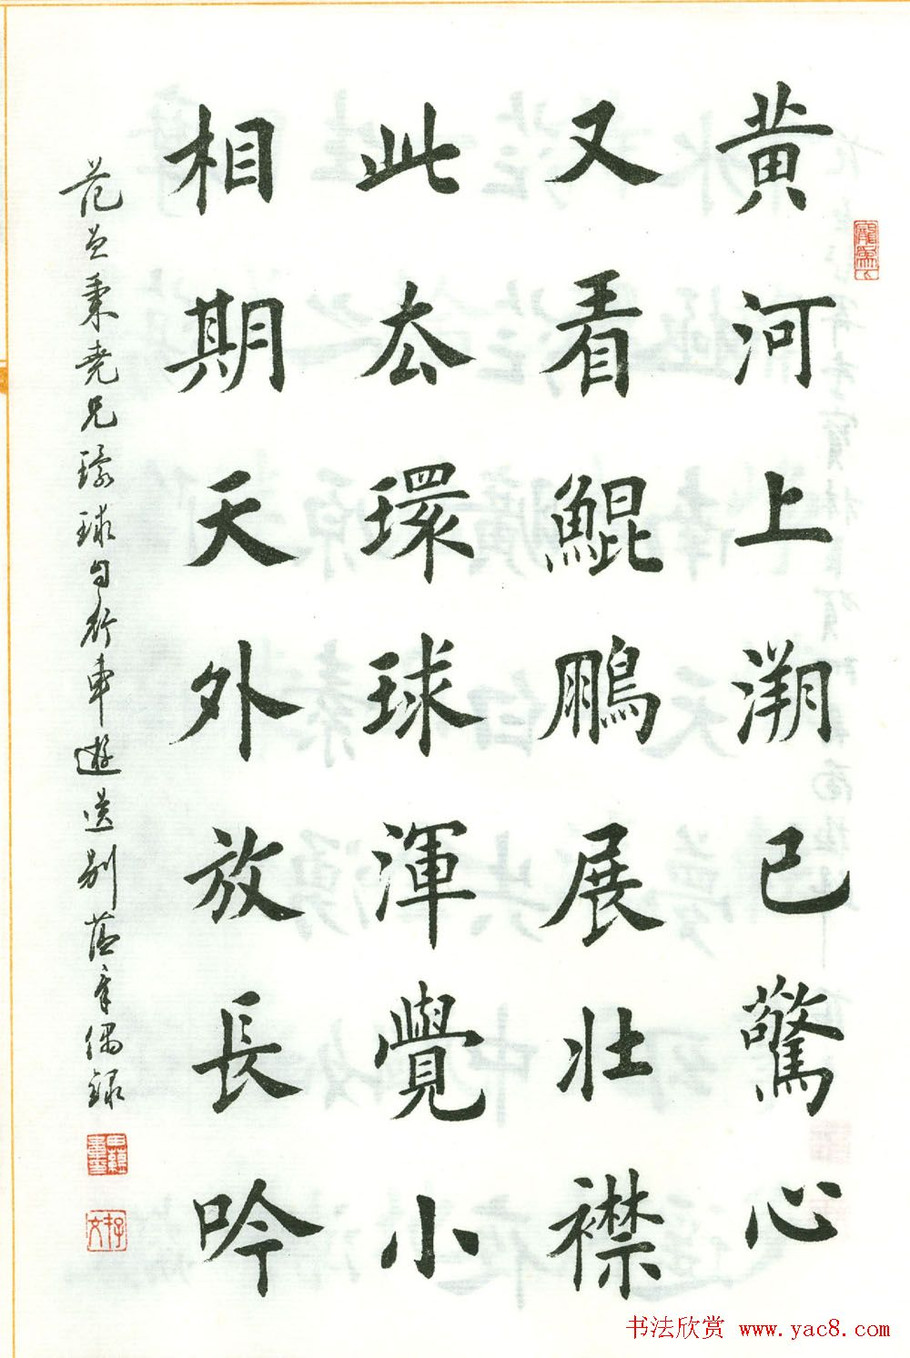 黄河上溯已驚心
又看鯤鵬展壯襟
此厺環球渾覺小
相期天外放長吟
范秉堯兄環球自行車遊送别蕴章偶録
书法欣赏 www.yac8.com